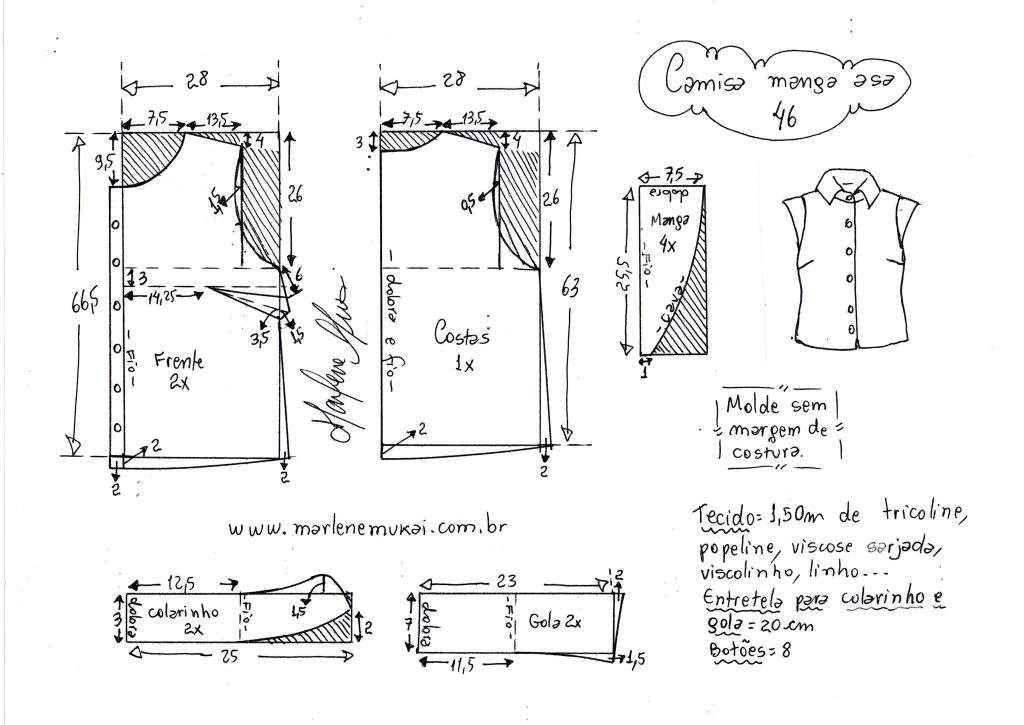 Camisa manga asa
46
28
7,5
13,5
4
9,5
26
1,5
3
14,25
6
3,5
1,5
66,5
Fio
Frente
2x
2
2
2
28
7,5
13,5
3
4
0,5
26
63
dobra e fio
Costas
1x
2
2
Marlene Mukai
7,5
dobra
Manga
4x
Fio
cava
25,5
1
Molde sem
margem de
costura.
www.marlenemukai.com.br
Tecido= 1,50m de tricoline,
popeline, viscose sarjada,
viscolinho, linho...
Entretela para colarinho e
gola = 20 cm
Botões= 8
12,5
3
dobra
colarinho
2x
Fio
1,5
2
25
23
2
7
Dobra
Fio
Gola 2x
11,5
1,5